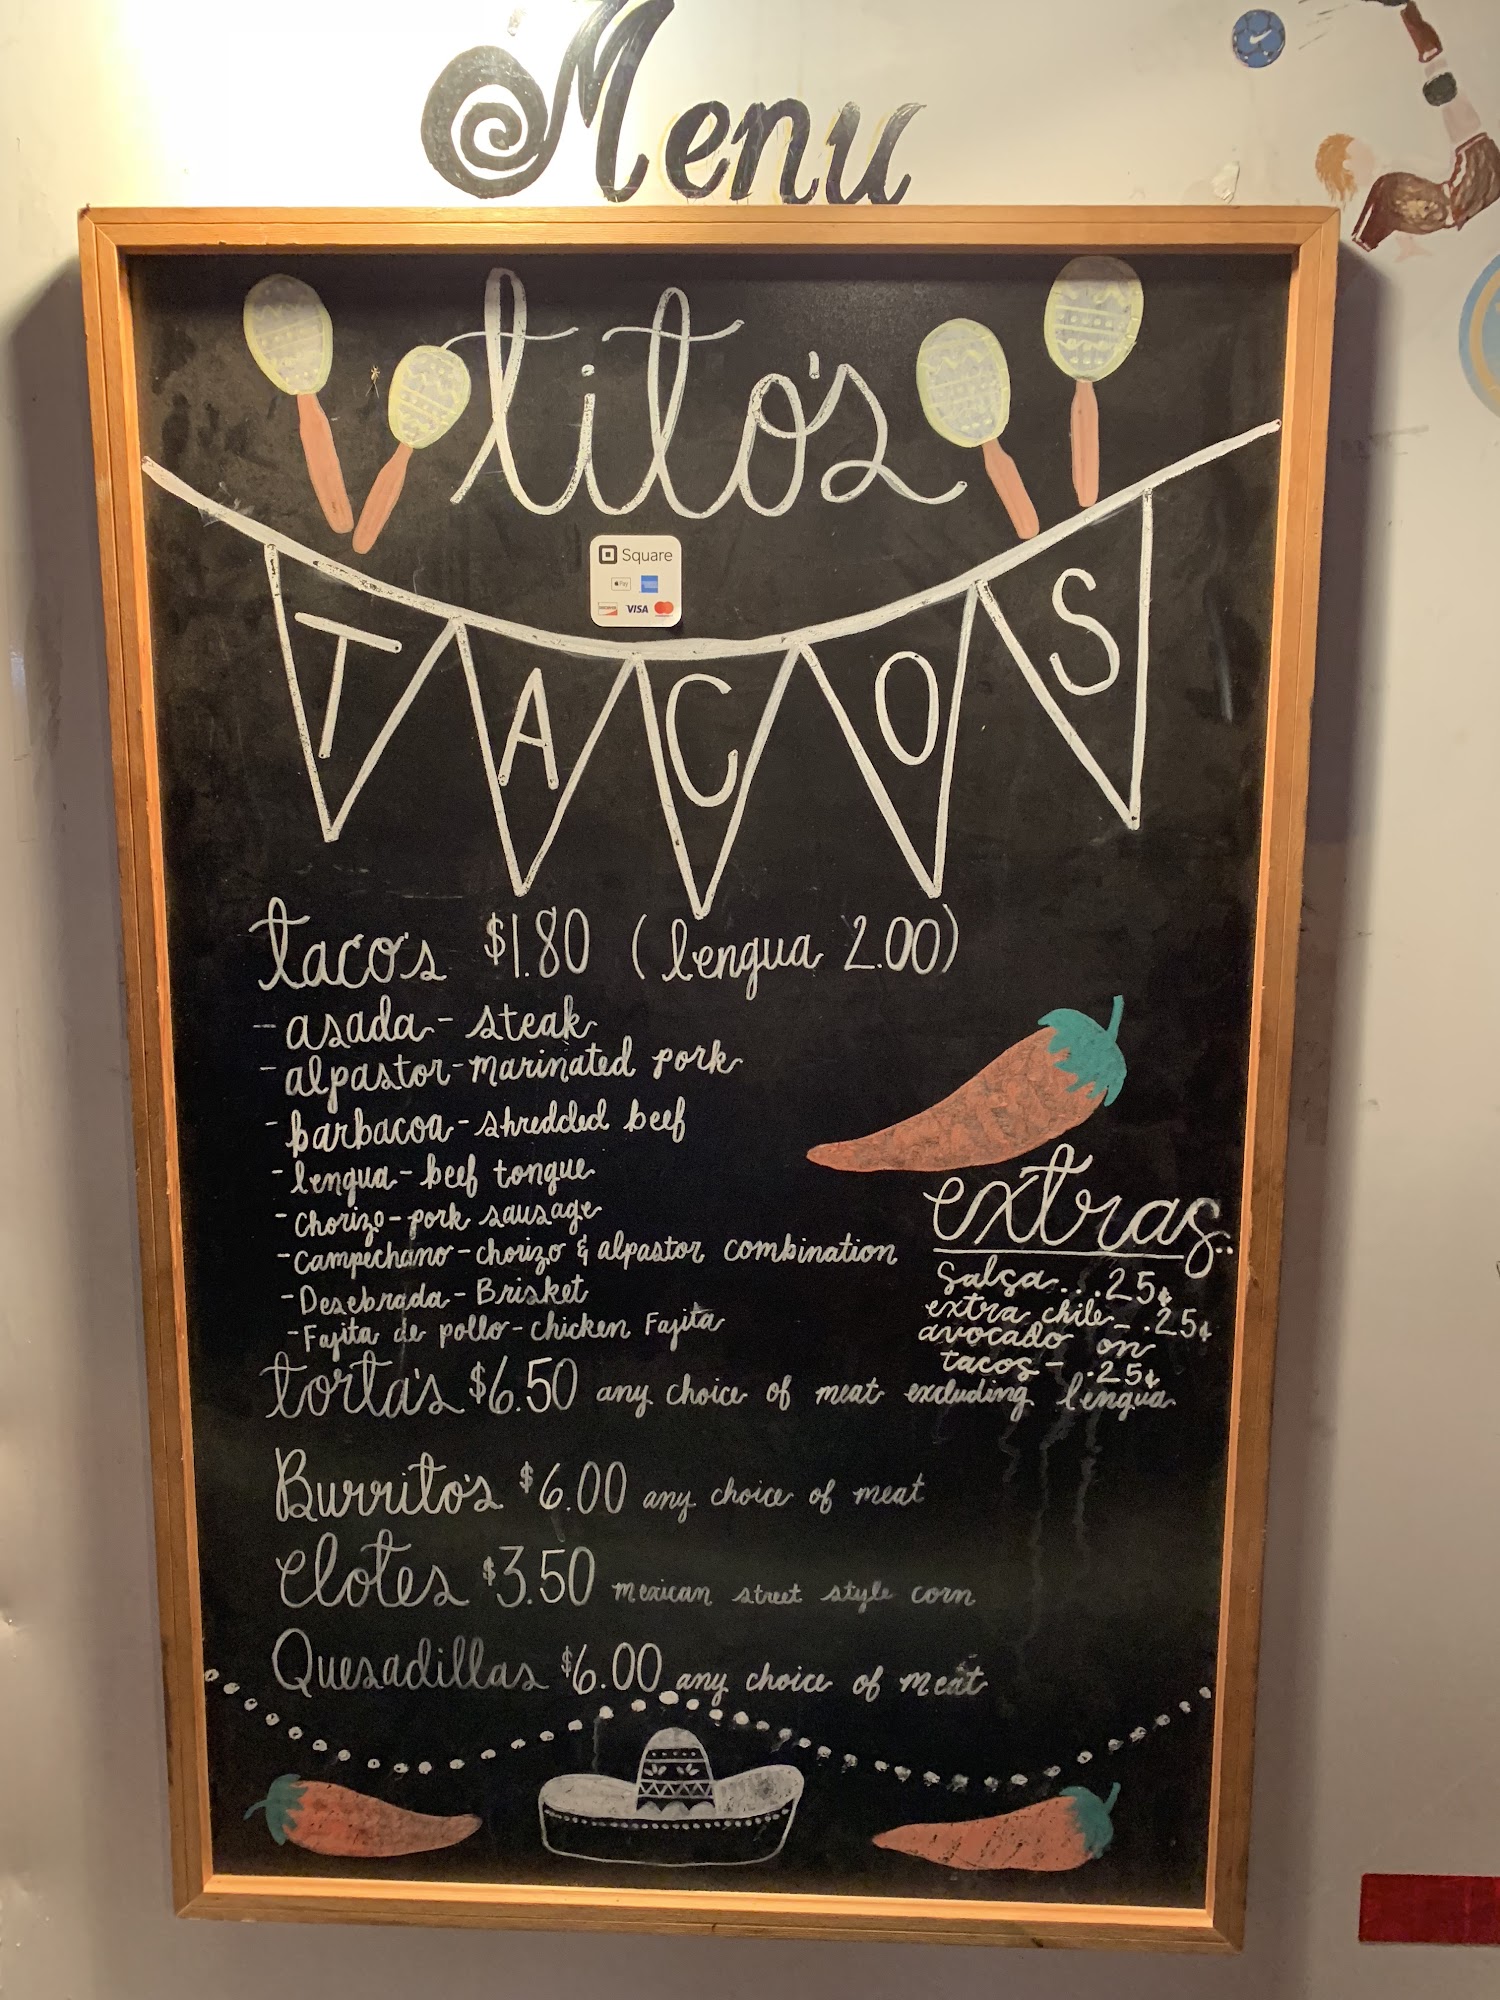 Menu
tito's
Square
Pay
DISCOVER VISA
TACOS
taco's $1.80 (lengua 2.00)
- asada - steak
- alpastor - marinated pork
- barbacoa - shredded beef
- lengua - beef tongue
- chorizo - pork sausage
- Campechano - chorizo & alpastor combination
- Desebrada - Brisket
- Fajita de pollo - chicken Fajita
extras..
Salsa...25¢
extra chile - .25¢
avocado on
tacos - .25¢
torta's $6.50 any choice of meat excluding lengua
Burrito's $6.00 any choice of meat
elotes $3.50 mexican street style corn
Quesadillas $6.00 any choice of meat